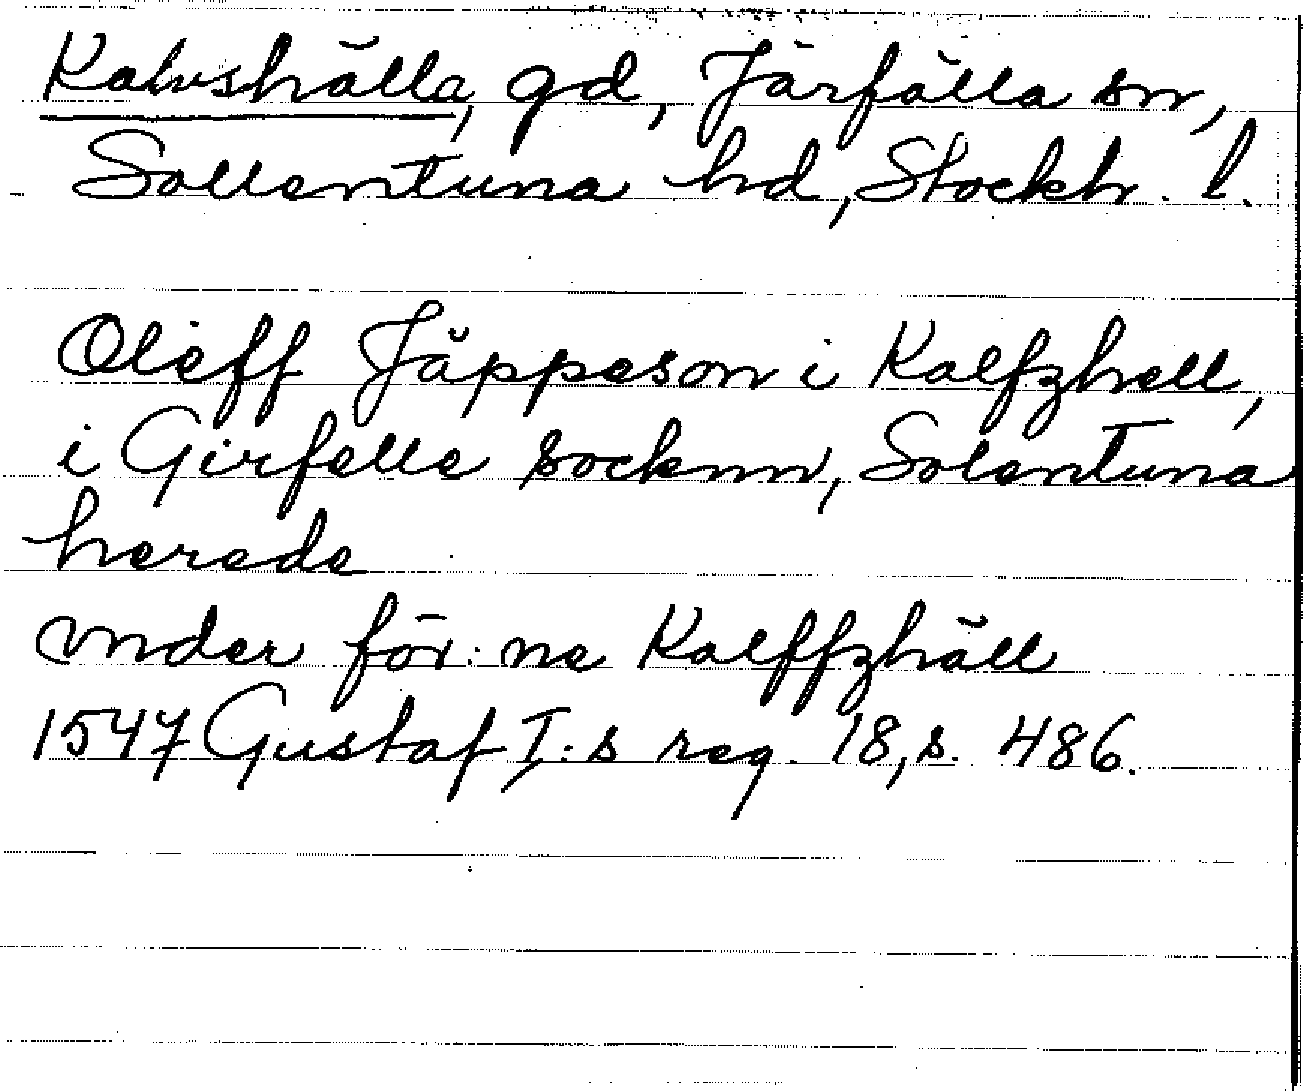 Kalvshälla, gd, Järfälla sn,
Sollentuna hd, Stockh. l.
Oleff Jäppeson i Kalfzhell,
i Girfelle socknn, Solentuna
herede
vnder för:ne Kalffzhäll
1547 Gustaf I:s reg. 18, s. 486.